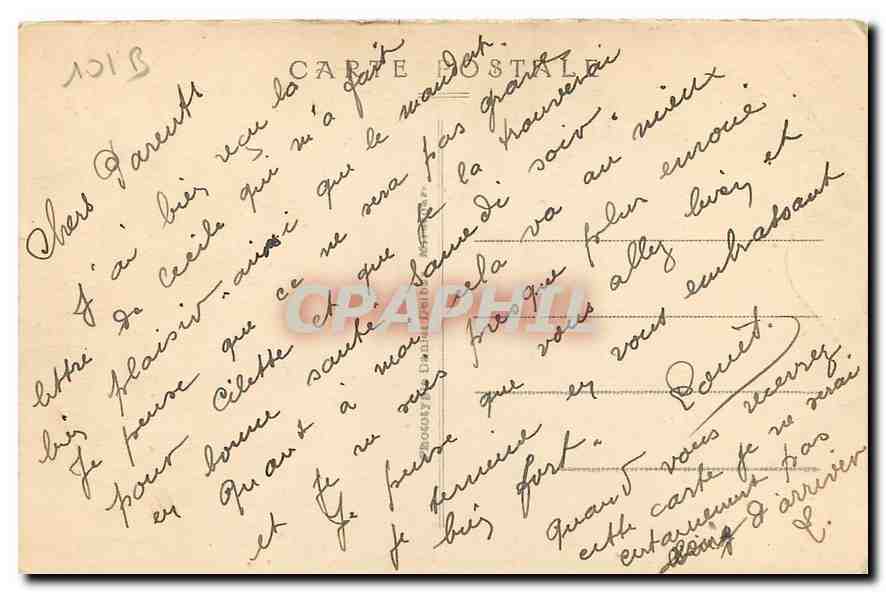 101B
CARTE POSTALE
Chers Parents
J'ai bien reçu la
lettre de Cecile qui m'a fait
bien plaisir ainsi que le mandat.
Je pense que ce ne sera pas grave
pour Cilette et que je la trouverai
en bonne santé Samedi soir.
Quant à moi cela va au mieux
et je ne suis presque plus enroué.
Je pense que vous allez bien et
je termine en vous embrassant
bien fort.
Quand vous recevrez
cette carte je ne serai
certainement pas
loin d'arriver
Phototypie Daniel Delboy
CPAPHIL